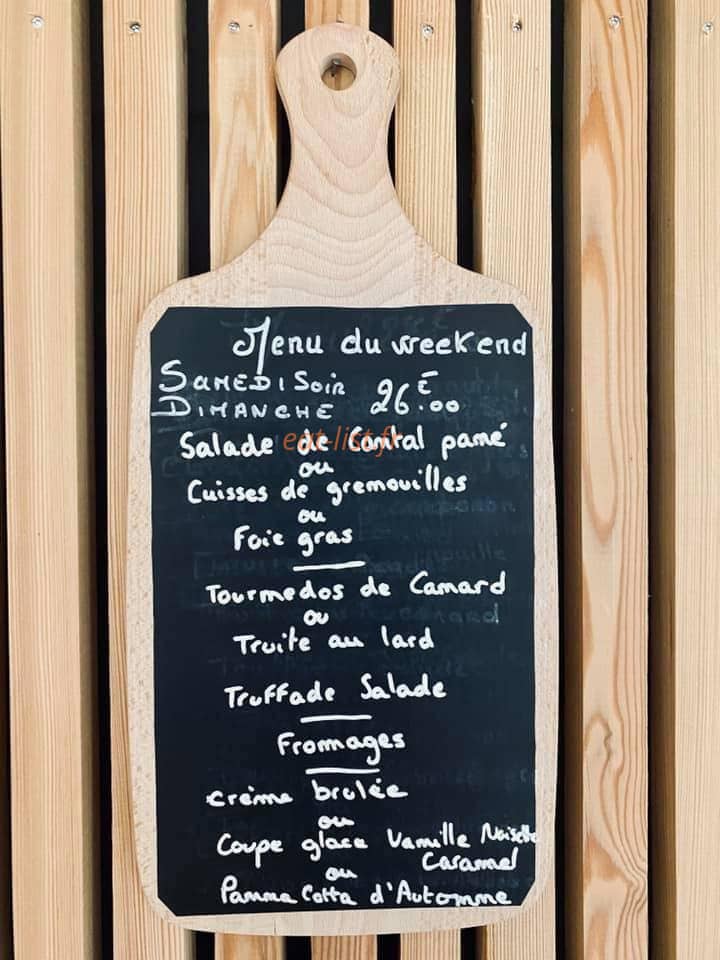 Menu du weekend
SAMEDI SOIR
DIMANCHE 26€.00
Salade de Cantal pané
eat-list.fr
ou
Cuisses de grenouilles
ou
Foie gras
Tournedos de Canard
ou
Truite au lard
Truffade Salade
Fromages
crème brulée
ou
Coupe glace Vanille Noisette
Caramel
ou
Panna Cotta d'Automne